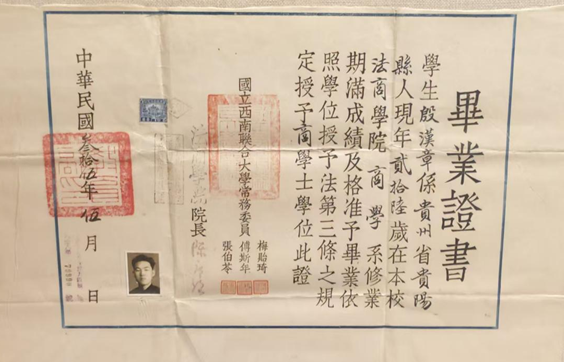 畢業證書
學生殷漢章係貴州省貴陽
縣人現年貳拾陸歲在本校
法商學院商學系修業
期滿成績及格准予畢業依
照學位授予法第三條之規
定授予商學士學位此證
國立西南聯合大學常務委員
梅貽琦
傅斯年
張伯苓
院長
中華民國叁拾伍年伍月日